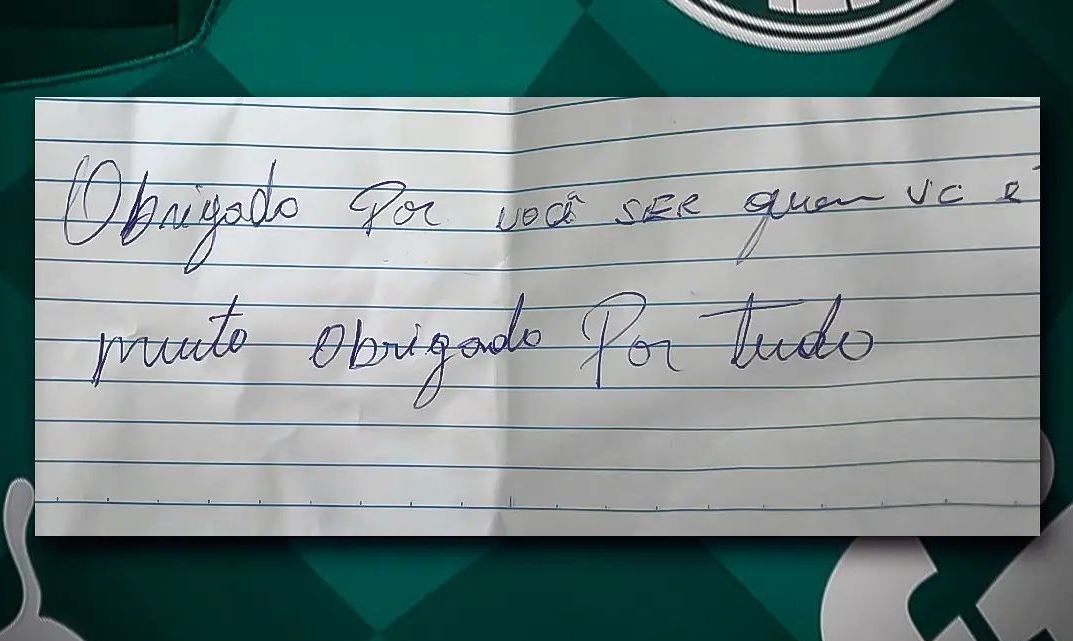 Obrigado Por você SER quem vc é
muito obrigado Por tudo